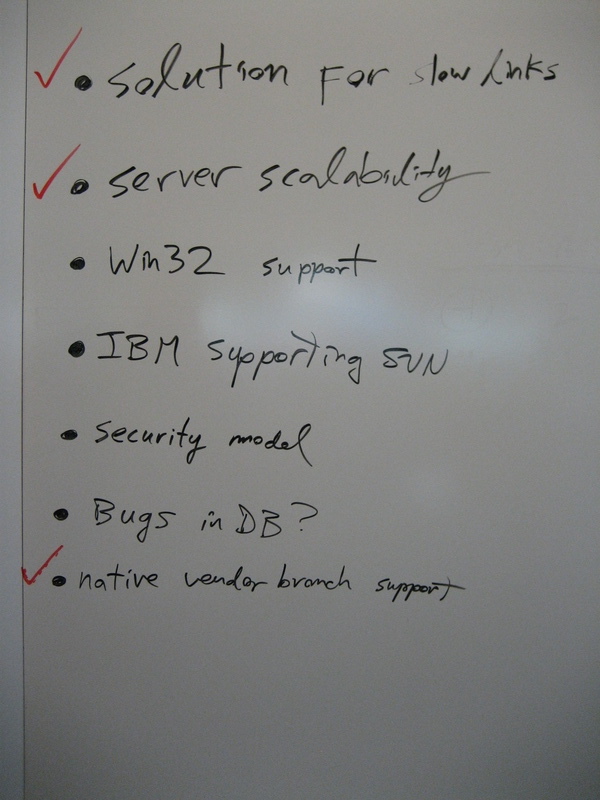 ✓ • solution for slow links
✓ • server scalability
• Win32 support
• IBM supporting SVN
• security model
• Bugs in DB?
✓ • native vendor branch support